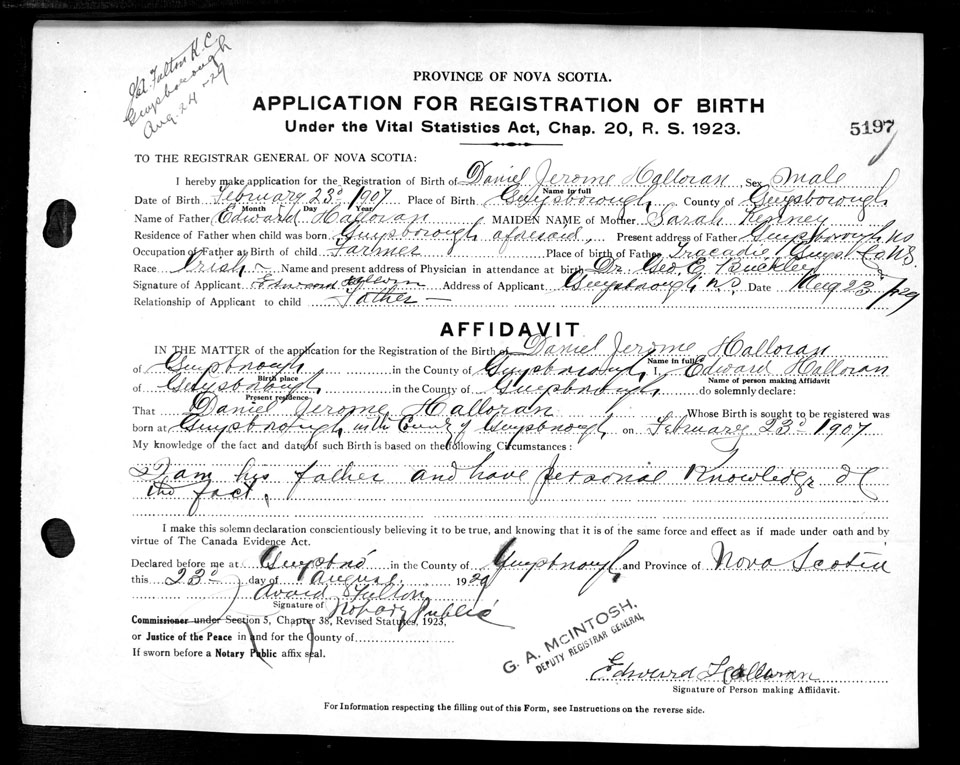 Guysborough
Aug. 24-29
PROVINCE OF NOVA SCOTIA.
APPLICATION FOR REGISTRATION OF BIRTH
Under the Vital Statistics Act, Chap. 20, R. S. 1923.
5197
TO THE REGISTRAR GENERAL OF NOVA SCOTIA:
I hereby make application for the Registration of Birth of Daniel Jerome Halloran Sex Male
Name in full
Date of Birth February 23d 1907 Place of Birth Guysborough County of Guysborough
Month Day Year
Name of Father Edward Halloran MAIDEN NAME of Mother Sarah Kenney
Residence of Father when child was born Guysborough aforesaid, Present address of Father Guysborough NS
Occupation of Father at Birth of child Farmer Place of birth of Father Tracadie, Guys. Co. N.S.
Race Irish Name and present address of Physician in attendance at birth Dr. Geo. E. Buckley
Signature of Applicant Edward Address of Applicant Guysborough N.S. Date Aug 23 1929
Relationship of Applicant to child Father
AFFIDAVIT
IN THE MATTER of the application for the Registration of the Birth of Daniel Jerome Halloran
Name in full
of Guysborough in the County of Guysborough I, Edward Halloran
Birth place Name of person making Affidavit
of Guysborough in the County of Guysborough do solemnly declare:
Present residence
That Daniel Jerome Halloran Whose Birth is sought to be registered was
born at Guysborough in the County of Guysborough on February 23d 1907
My knowledge of the fact and date of such Birth is based on the following Circumstances:
I am his father and have personal knowledge of
the fact.
I make this solemn declaration conscientiously believing it to be true, and knowing that it is of the same force and effect as if made under oath and by
virtue of The Canada Evidence Act.
Declared before me at Guysboro in the County of Guysborough and Province of Nova Scotia
this 23d day of August 1929
Fulton
Signature of Notary Public
Commissioner under Section 5, Chapter 38, Revised Statutes, 1923,
or Justice of the Peace in and for the County of
If sworn before a Notary Public affix seal.
G. A. MCINTOSH.
DEPUTY REGISTRAR GENERAL
Edward Halloran
Signature of Person making Affidavit.
For Information respecting the filling out of this Form, see Instructions on the reverse side.